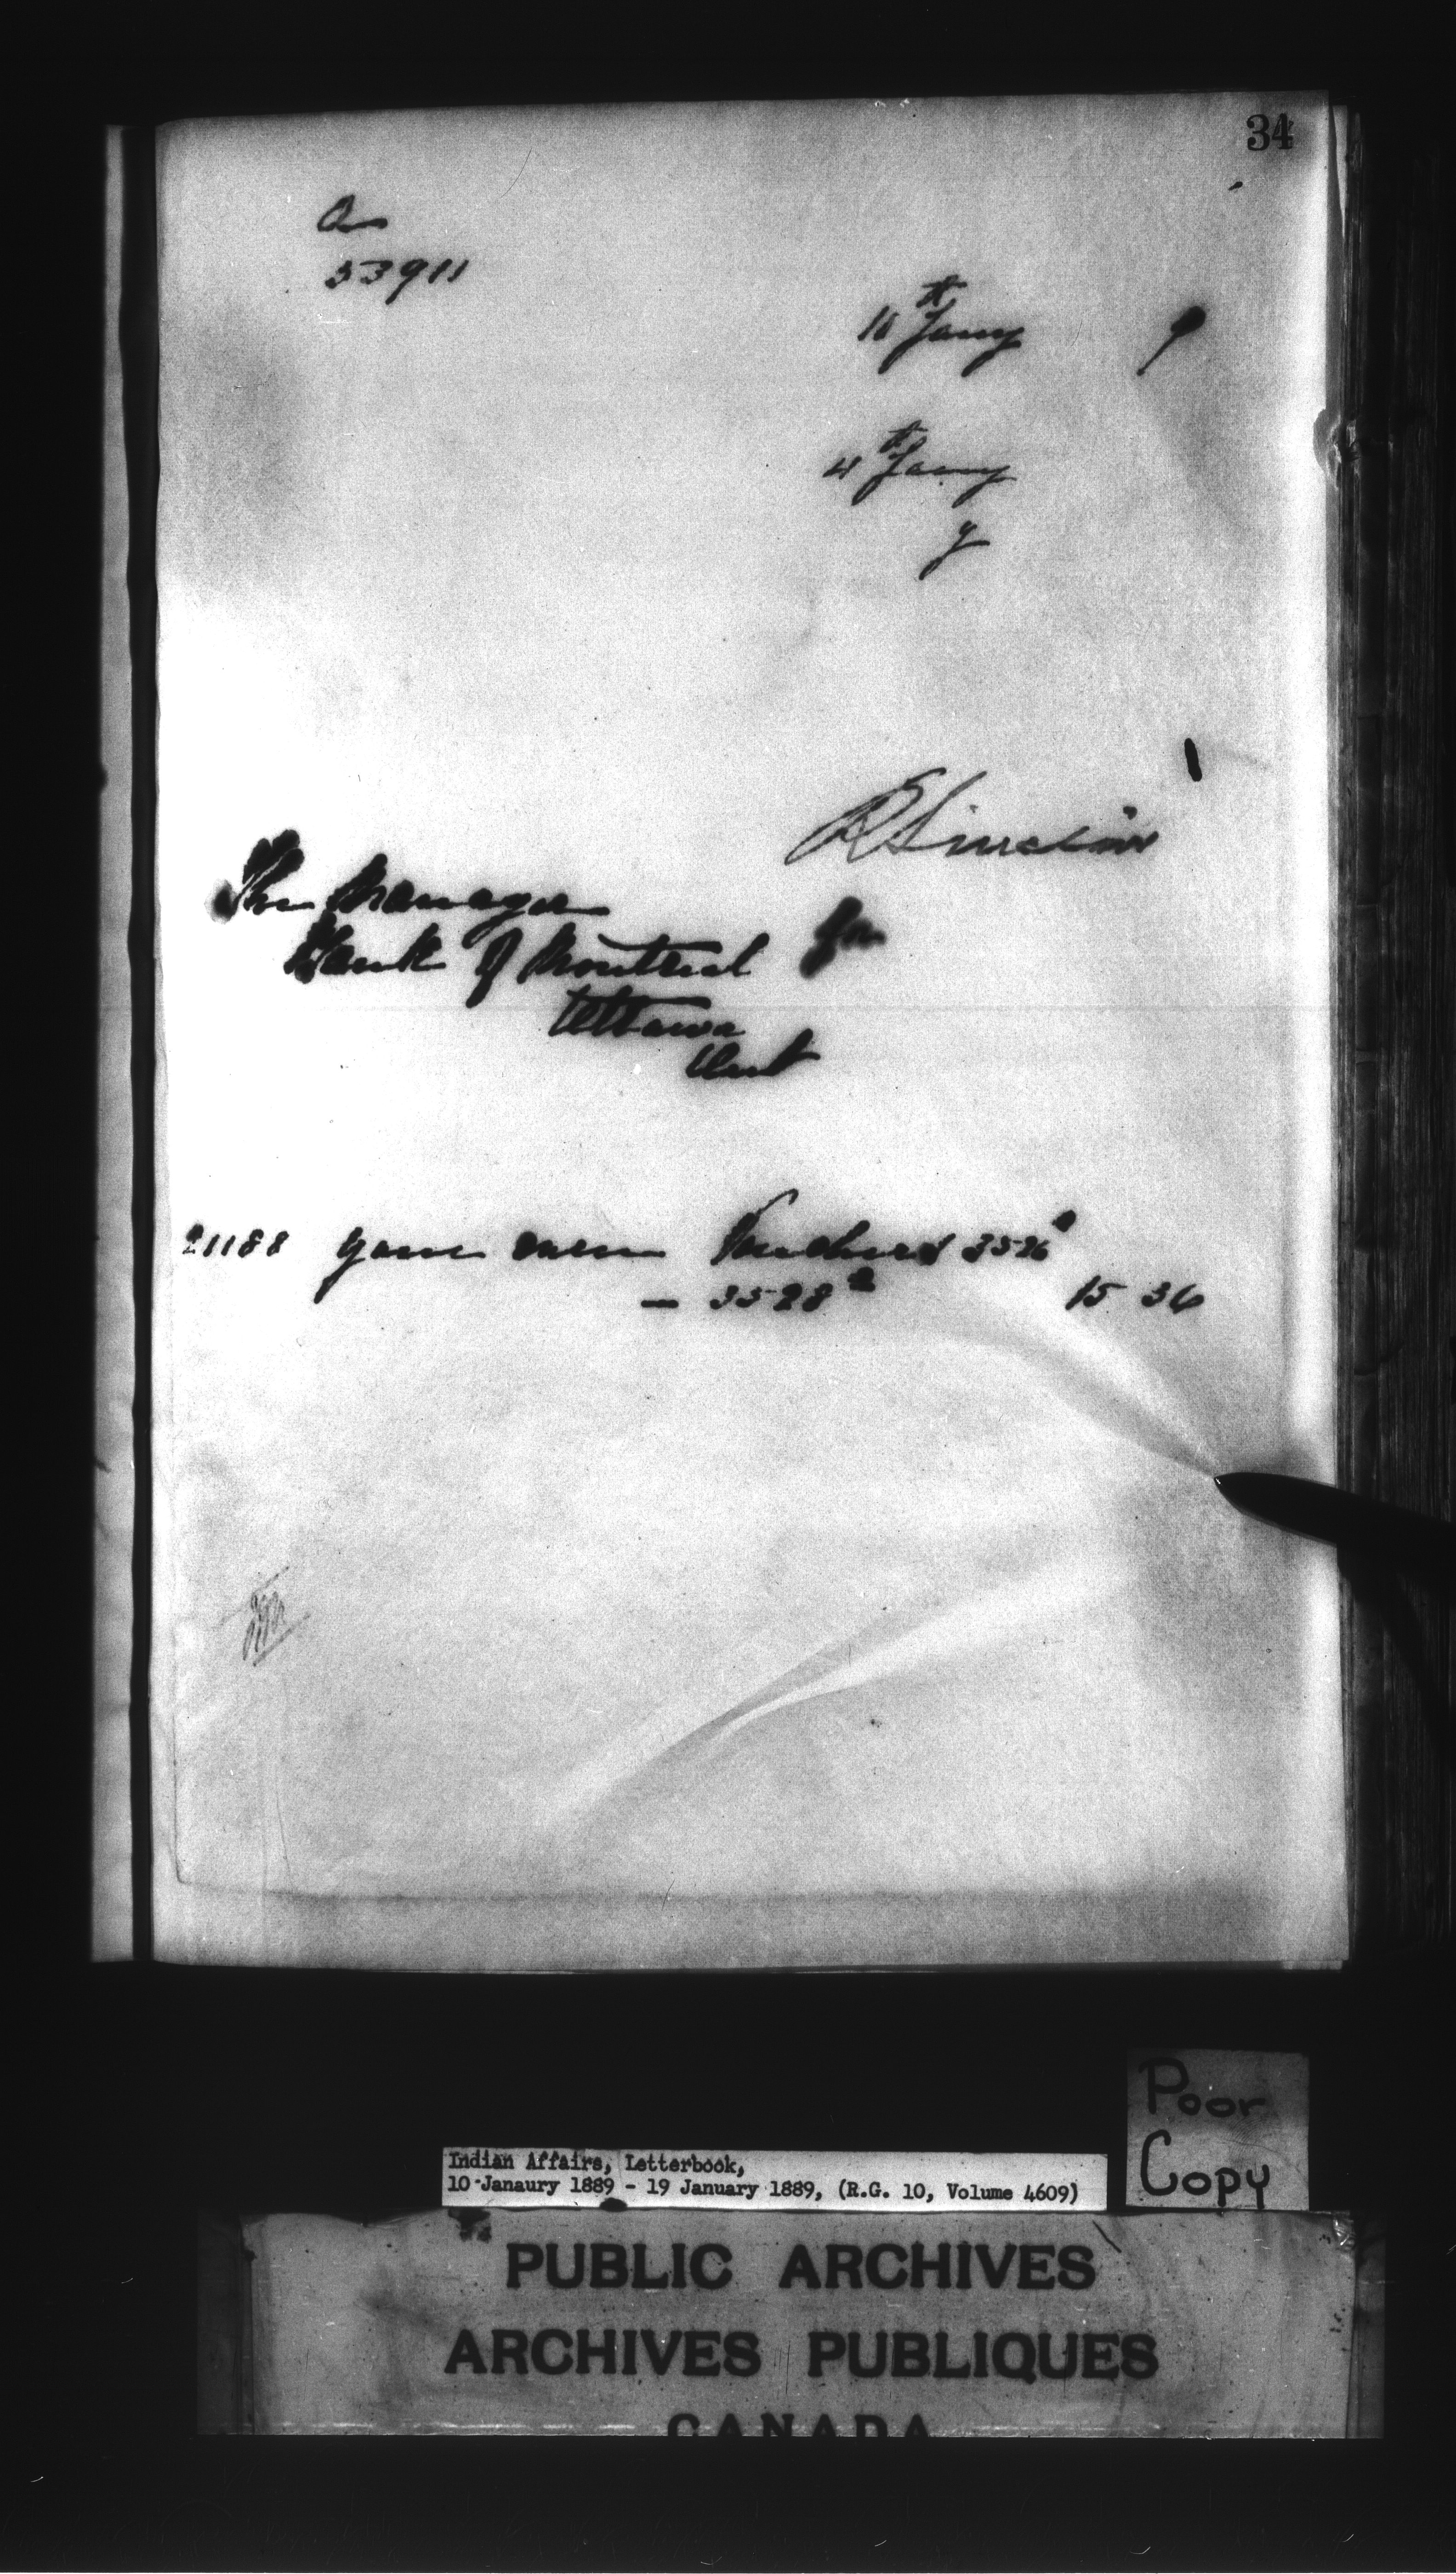 34
53911
10th Jany 9
4th Jany
R Sinclair
The Manager
for
Bank of Montreal
Ottawa
Ont
21188 Your own Vouchers 3526
— 3528 15 36
Poor
Copy
Indian Affairs, Letterbook,
10 Janaury 1889 - 19 January 1889, (R.G. 10, Volume 4609)
PUBLIC ARCHIVES
ARCHIVES PUBLIQUES
CANADA